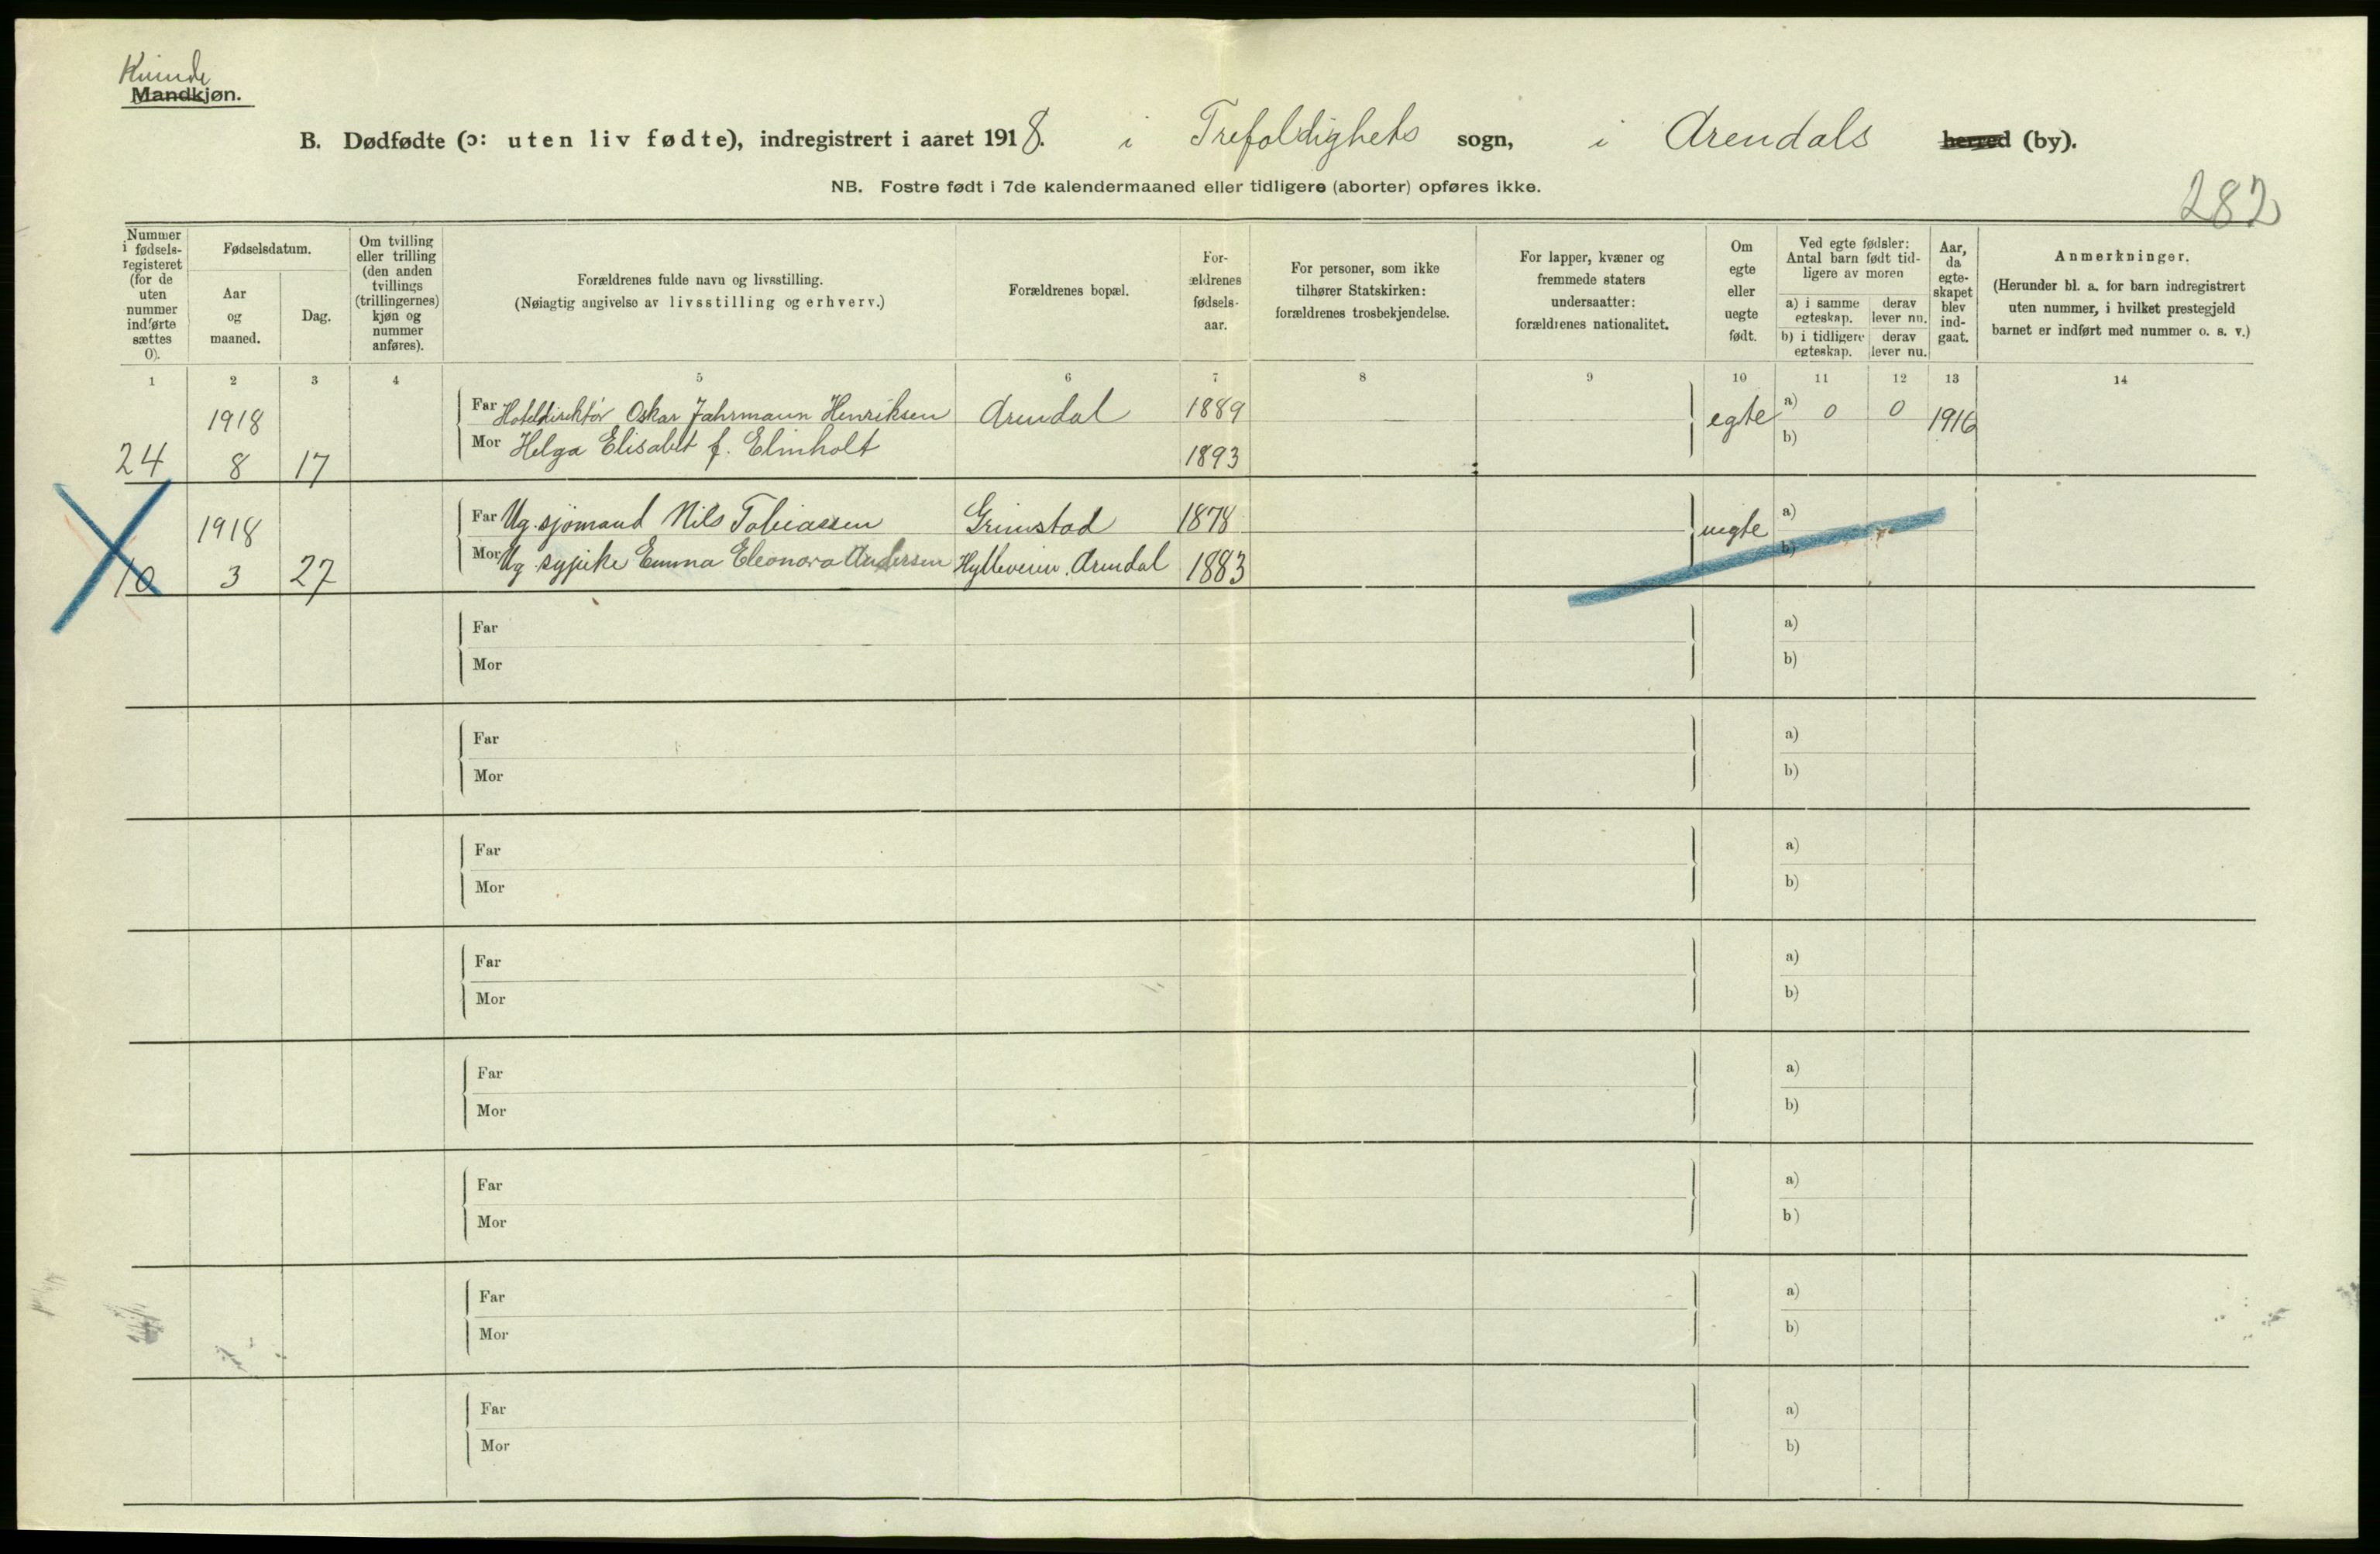 Kvinde
Mandkjøn.
B. Dødfødte (ɔ: uten liv fødte), indregistrert i aaret 1918. i Trefoldighets sogn, i Arendals herred (by).
NB. Fostre født i 7de kalendermaaned eller tidligere (aborter) opføres ikke.
282
Nummer i fødsels-registeret (for de uten nummer indførte sættes 0).
Fødselsdatum.
Aar og maaned.
Dag.
Om tvilling eller trilling (den anden tvillings (trillingernes) kjøn og nummer anføres).
Forældrenes fulde navn og livsstilling.
(Nøiagtig angivelse av livsstilling og erhverv.)
Forældrenes bopæl.
For-ældrenes fødsels-aar.
For personer, som ikke tilhører Statskirken: forældrenes trosbekjendelse.
For lapper, kvæner og fremmede staters undersaatter: forældrenes nationalitet.
Om egte eller uegte født.
Ved egte fødsler: Antal barn født tid-ligere av moren
a) i samme egteskap.
derav lever nu.
b) i tidligere egteskap.
derav lever nu.
Aar, da egte-skapet blev ind-gaat.
Anmerkninger.
(Herunder bl. a. for barn indregistrert uten nummer, i hvilket prestegjeld barnet er indført med nummer o. s. v.)
1 2 3 4 5 6 7 8 9 10 11 12 13 14
1918 Far Hoteldirektør Oskar Fahrmann Henriksen Arendal 1889 egte a) 0 0 1916
24 8 17 Mor Helga Elisabet f. Elmholt 1893 b)
1918 Far Ug. sjømand Nils Tobiassen Grimstad 1878 uegte a)
10 3 27 Mor Ug. sypike Emma Eleonora Andersen Hylleveien, Arendal 1883 b)
Far a)
Mor b)
Far a)
Mor b)
Far a)
Mor b)
Far a)
Mor b)
Far a)
Mor b)
Far a)
Mor b)
Far a)
Mor b)
Far a)
Mor b)